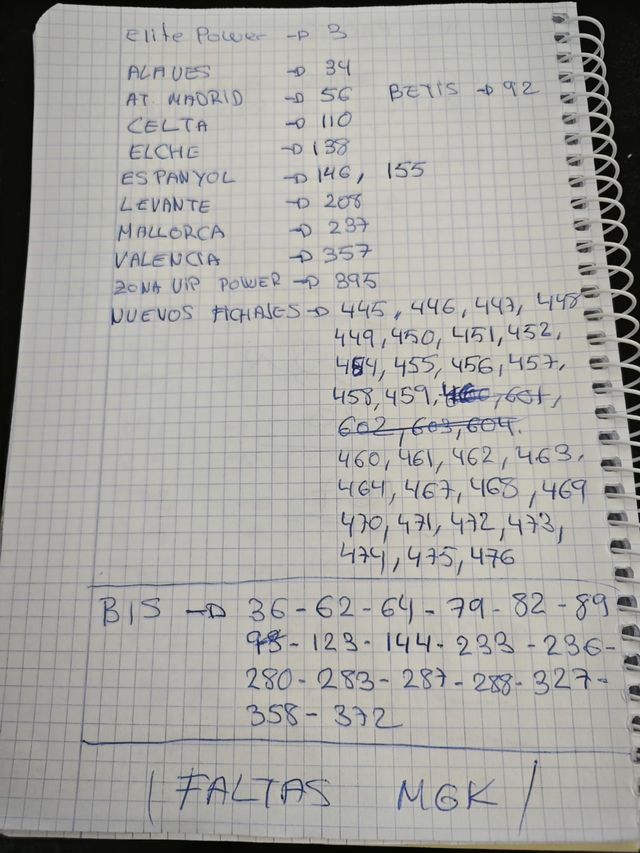 Elite Power → 3
ALAVES → 34
AT. MADRID → 56 BETIS → 92
CELTA → 110
ELCHE → 138
ESPANYOL → 146, 155
LEVANTE → 208
MALLORCA → 237
VALENCIA → 357
ZONA VIP POWER → 395
NUEVOS FICHAJES → 445, 446, 447, 448
449, 450, 451, 452,
454, 455, 456, 457,
458, 459, 601,
602, 603, 604.
460, 461, 462, 463,
464, 467, 468, 469
470, 471, 472, 473,
474, 475, 476
BIS → 36 - 62 - 64 - 79 - 82 - 89
- 123 - 144 - 233 - 236 -
280 - 283 - 287 - 288 - 327 -
358 - 372
/ FALTAS MGK /